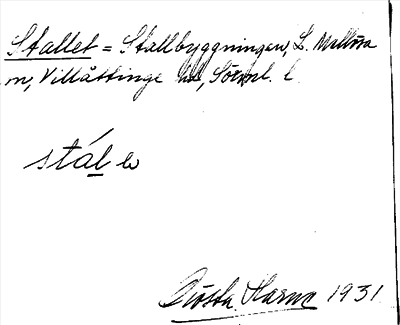 Stallet = Stallbyggningen, L. Mellösa
sn, Villåttinge hd, Sörml. l.
stál e
Gösta 1931